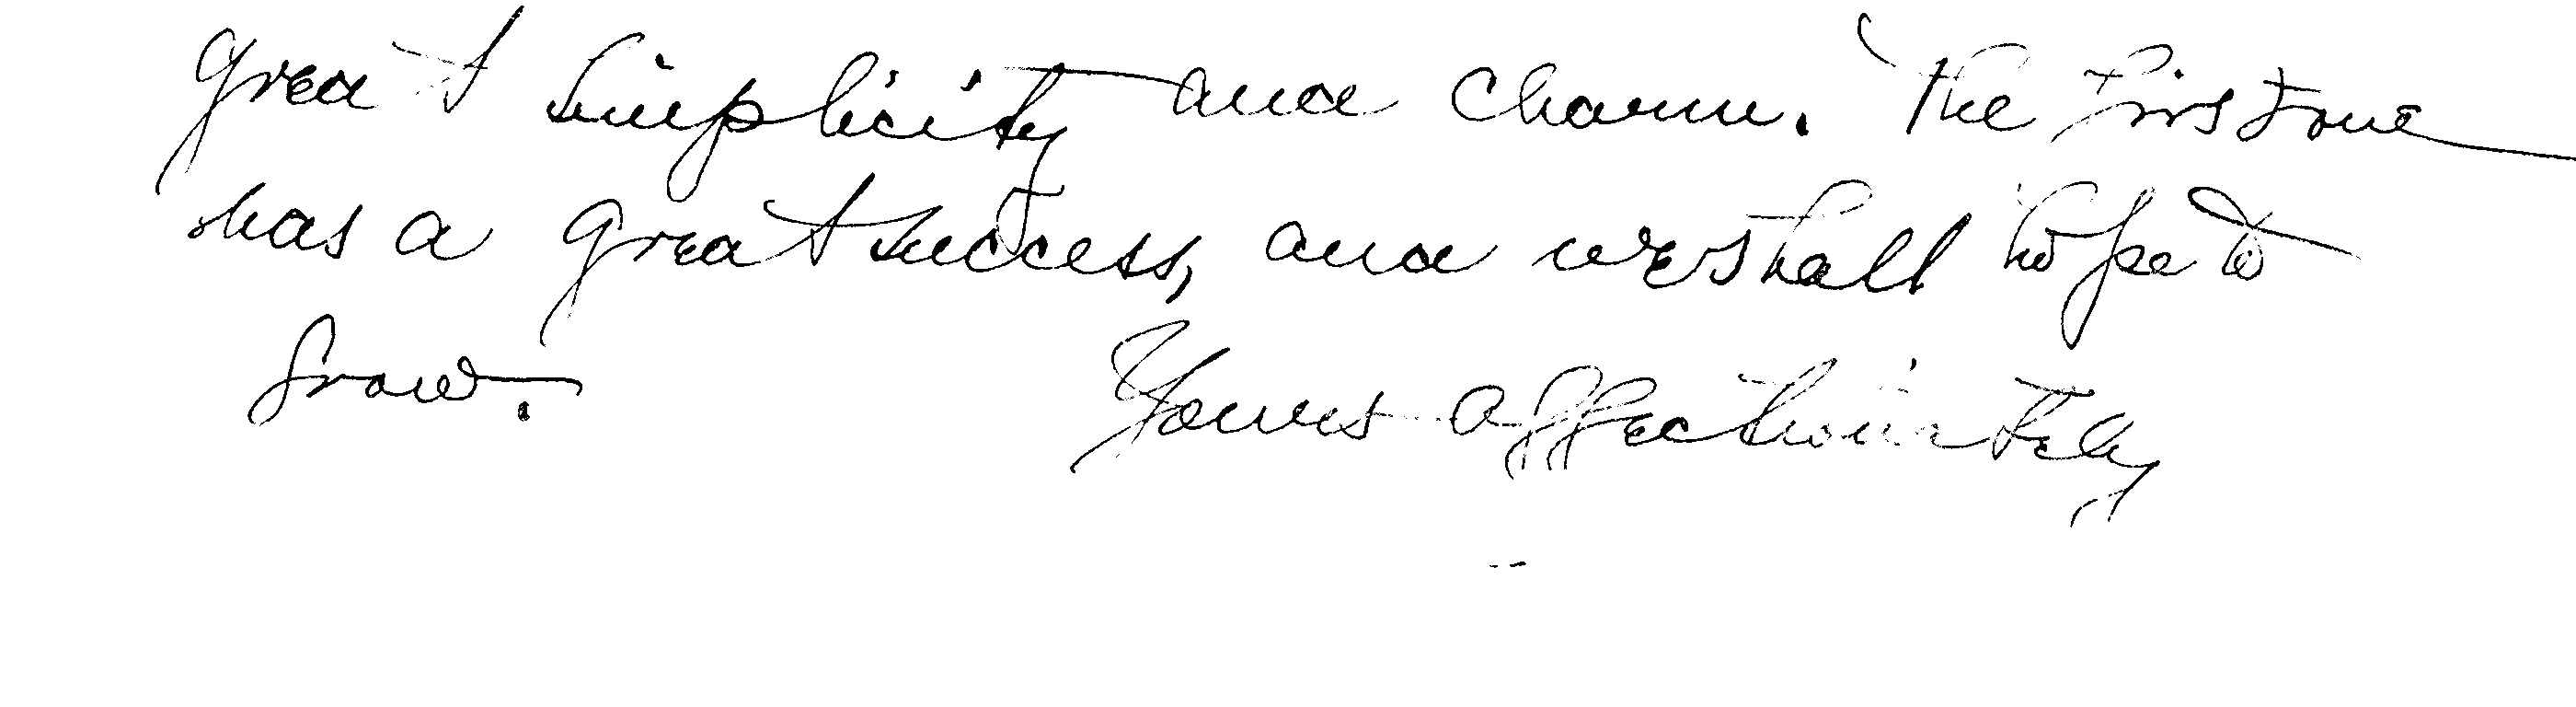 great simplicity and charm. The first one
has a great success, and we shall hope to
grow.
Yours affectionately